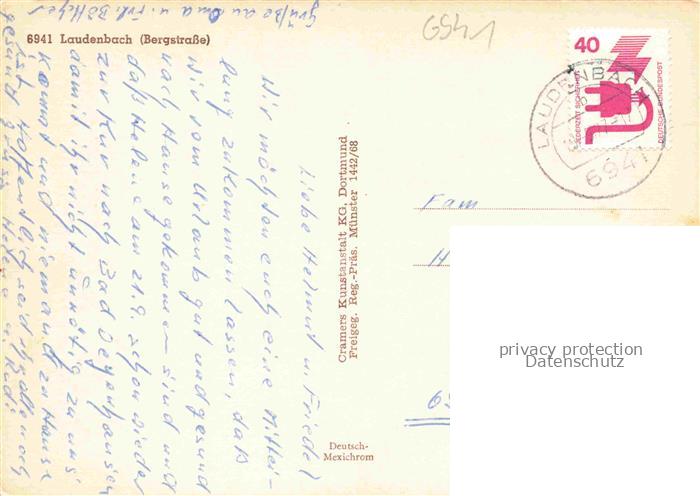 6941 Laudenbach (Bergstraße)
6941
40
JEDERZEIT SICHERHEIT
DEUTSCHE BUNDESPOST
LAUDENBACH
6941
Liebe Helmut u. Friedel
Wir möchten euch eine Mittei-
lung zukommen lassen, daß
wir vom Urlaub gut und gesund
nach Hause gekommen sind und
daß Helene am 21.9. schon wieder
zur Kur nach Bad Oeynhausen
damit ihr nicht unnötig zu uns
kommt und niemand zu Hause
ist. Hoffentlich seit ihr alle noch
gesund Helene u. Rudi
Grüße an Oma u. Frl.
Cramers Kunstanstalt KG, Dortmund
Freigeg. Reg.-Präs. Münster 1442/68
Deutsch-
Mexichrom
Fam
H
6
privacy protection
Datenschutz